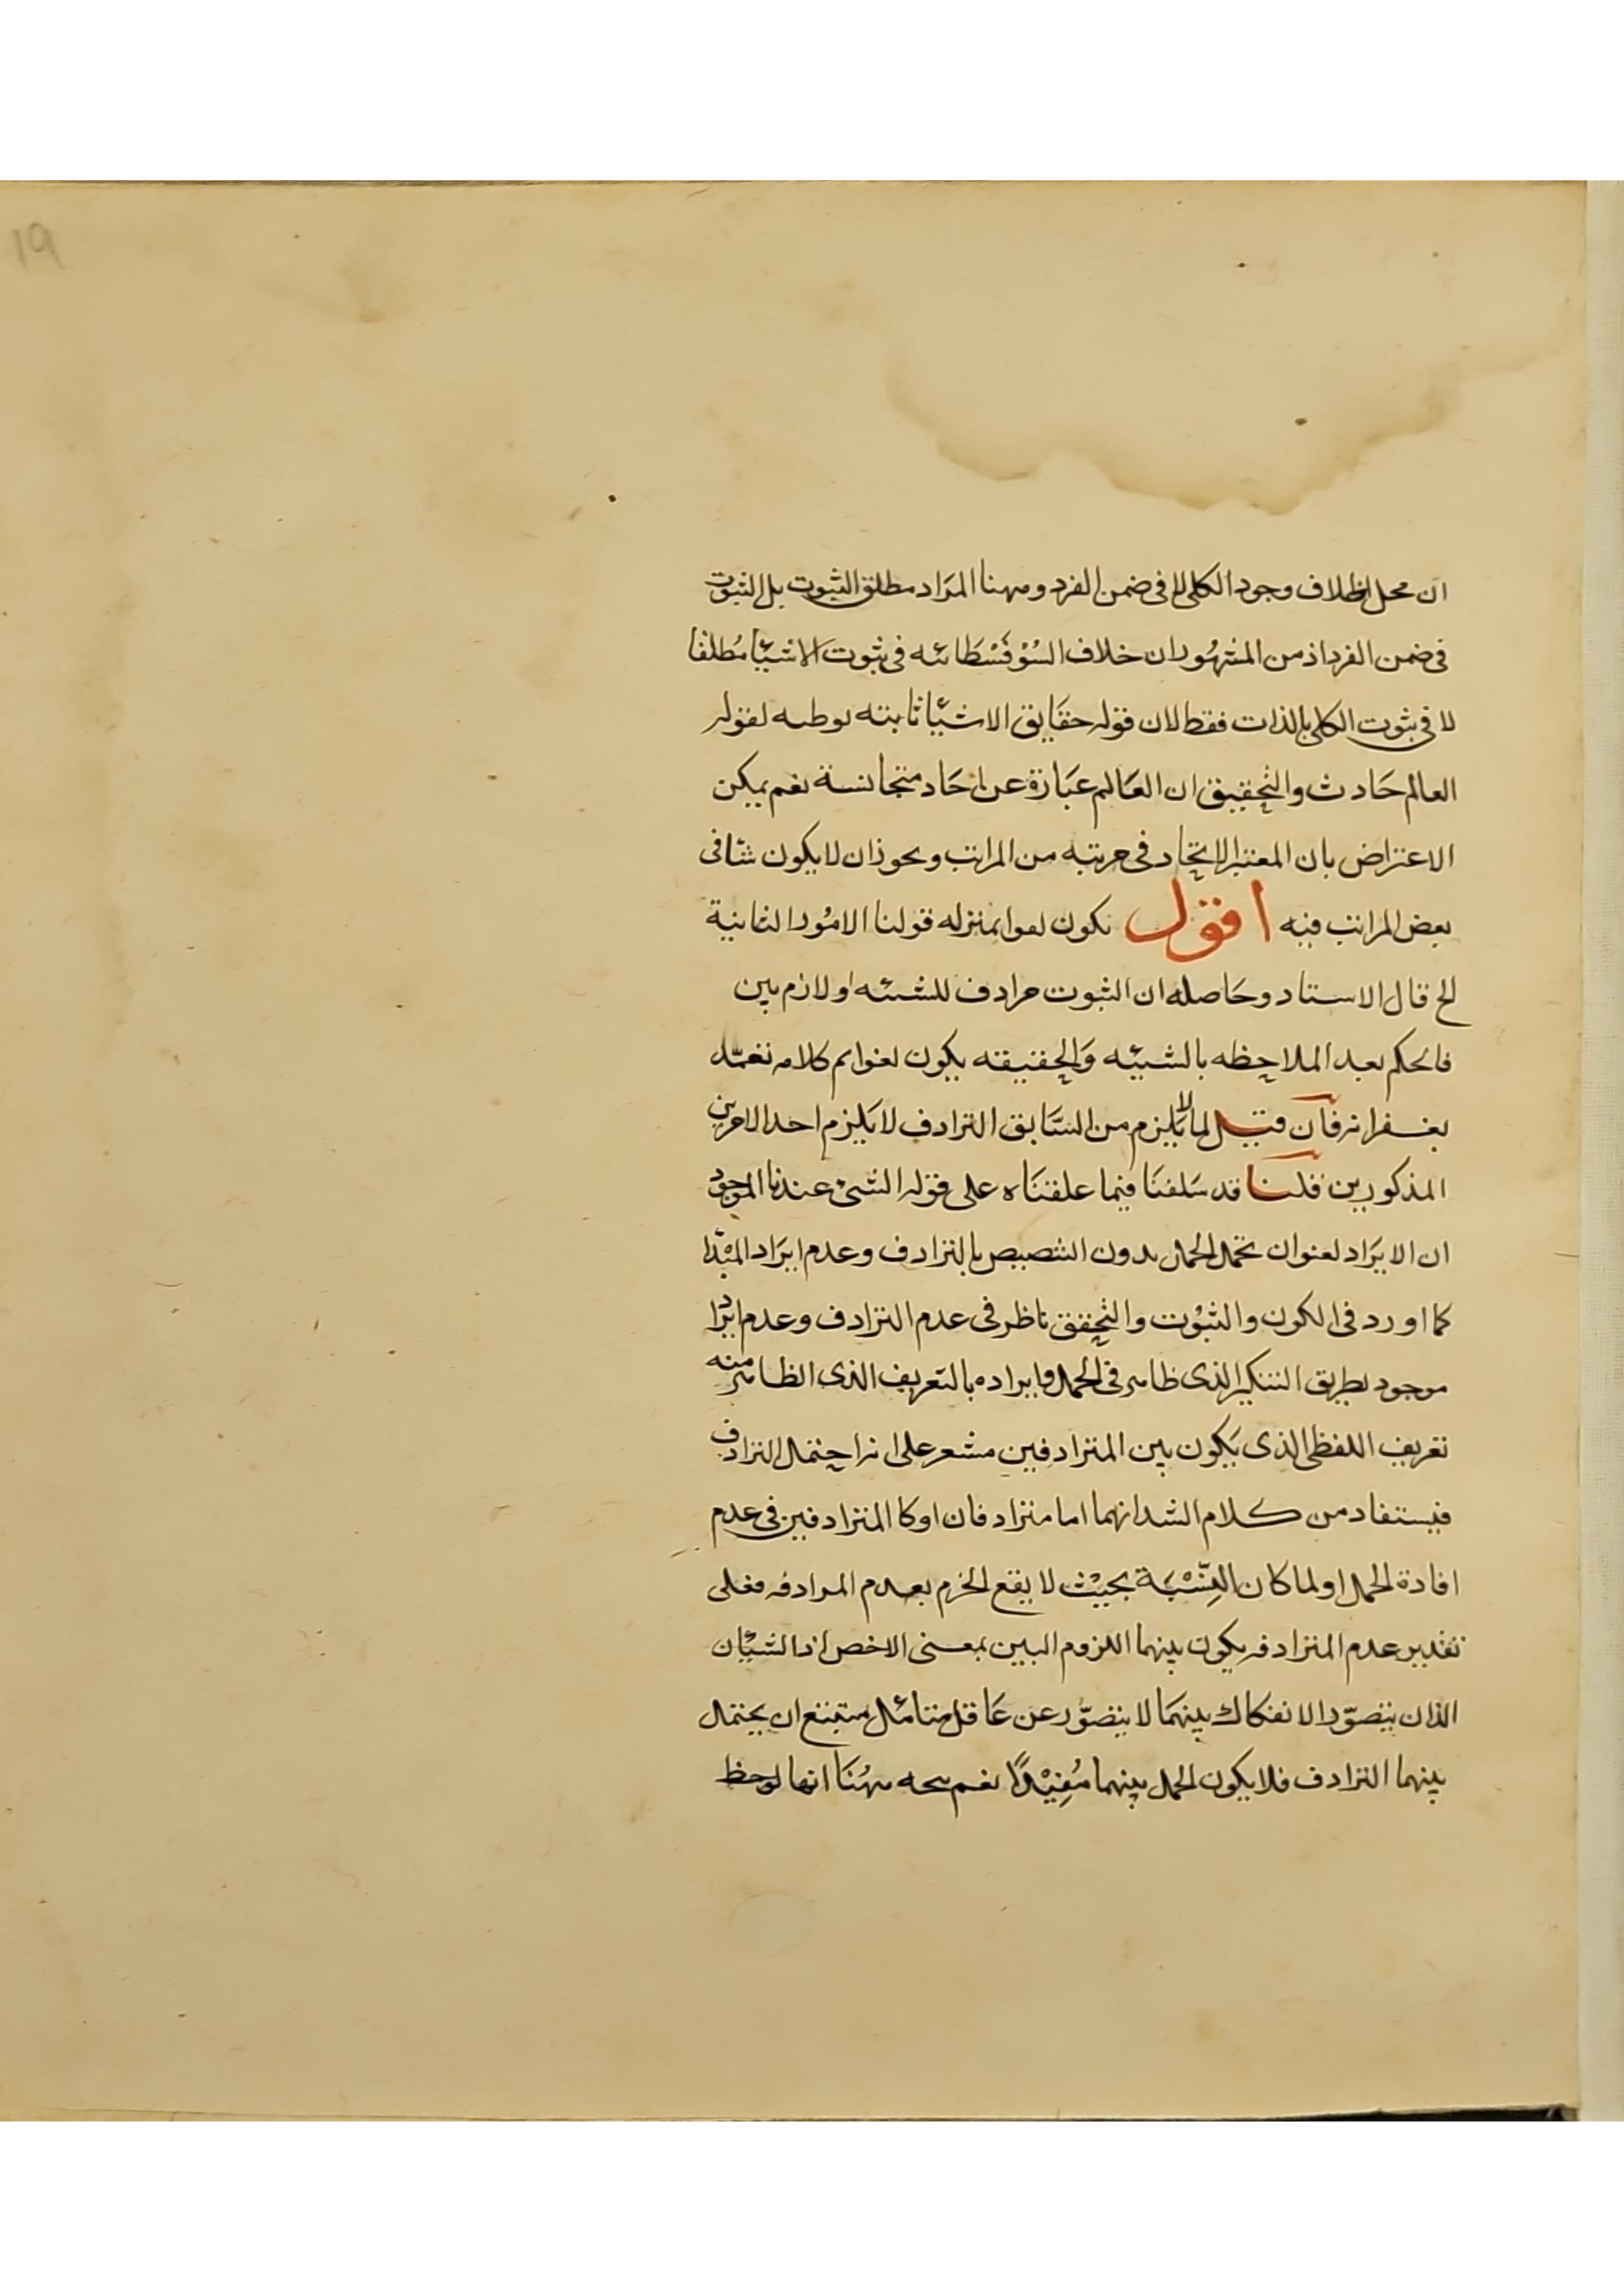 19
ان محل الخلاف وجود الكلي لا في ضمن الفرد وههنا المراد مطلق الثبوت بل الثبوت
في ضمن الفرد اذ من المشهوران خلاف السُوْفَسْطَائيه في ثبوت الاشيَا مُطلقا
لا في ثبوت الكلي بالذات فقط لان قوله حقَايق الاشيَا ثابته توطيه لقوله
العالم حَادث والتحقيق ان العَالم عبَارة عن احَاد متجانسة نعم يمكن
الاعتراض بان المعتبر الاتحاد في مرتبه من المراتب ويجوز ان لا يكون تنافى
بعض المراتب فيه اقول يكون لغوا بمنزله قولنا الامُور الثابتة
الخ قال الاستاد وحَاصله ان الثبوت مرادف للشيئيه او لازم بين
فالحكم بعد الملاحظه بالشيئيه وَالحقيقه يكون لغوا تم كلامه تغمّده
بغفرانه فان قيل لما لا يَلزم من السَّابق الترادف لا يَلزم احد الامرين
المذكورين قلنا قد سَلفنَا فيما علقنَاه على قوله الشئ عندنا الموجود
ان الايرَاد لعنوان تحمل الحمل بدون التنصيص بالترادف وعدم ايرَاد المبدَا
كما اورد في الكون والثبُوت والتحقق ناظر في عدم الترادف وعدم ايرَاد
موجود بطريق التنكير الذى ظاهر في الحمل وايراده بالتعريف الذى الظاهر منه
تعريف اللفظي الذى يَكون بين المترادفين مشعر على انه احتمال الترادف
فيستفاد من كلام الشد انهما اما مترادفان او كا المترادفين في عدم
افادة الحمل او لما كان النِسْبَة بحيْث لا يقع الجزم بعدم المرادفه فعلى
تقدير عدم المترادفه يكون بينهما اللزوم البين بمعنى الاخص اذ الشيئان
الذان يتصوّر الانفكاك بينهمَا لا يتصوّر عن عَاقل متأمل متتبع ان يحتمل
بينهما الترادف فلا يكون الحمل بينهما مُفِيْدًا نعم يتجه ههُنَا انها لوحظ